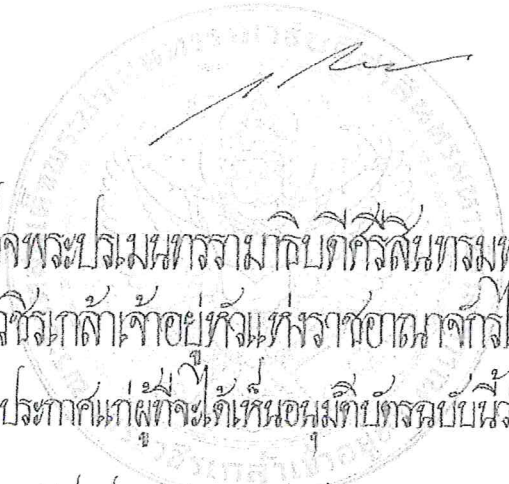 จพระปรเมนทรรามาธิบดีศรีสินทรมห
วชิรเกล้าเจ้าอยู่หัวแห่งราชอาณาจักรไ
ประกาศแก่ผู้ที่จะได้เห็นอนุมัติบัตรฉบับนี้ว